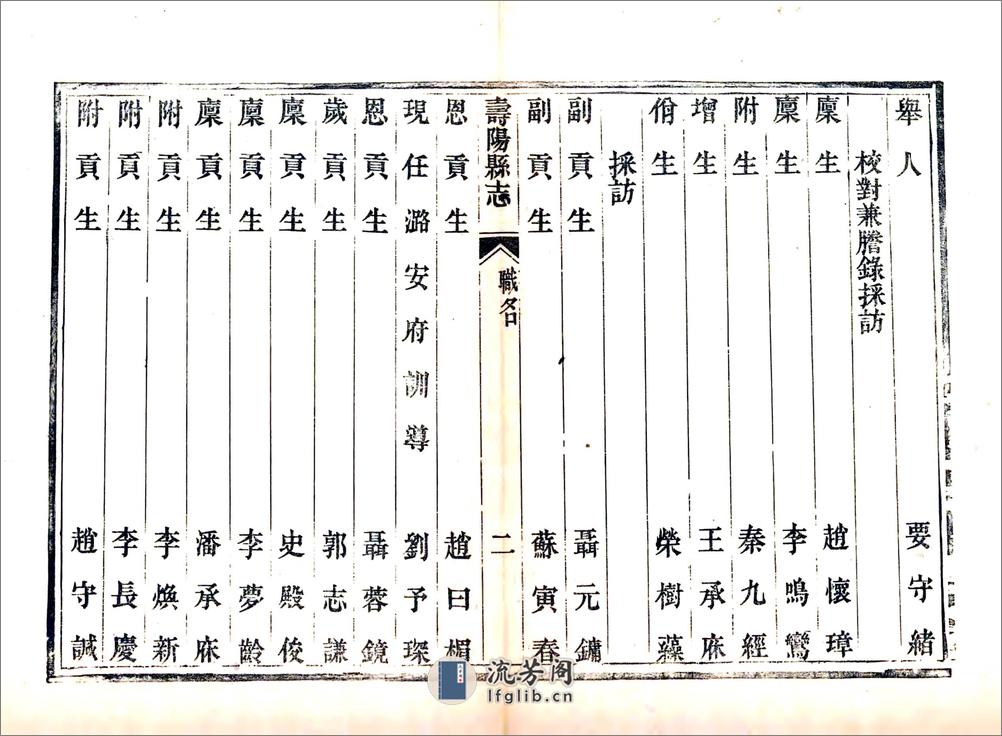 舉人 要守緒
校對兼謄錄採訪
廩生 趙懷璋
廩生 李鳴鸞
附生 秦九經
增生 王承庥
佾生 榮樹藻
採訪
副貢生 聶元鏞
副貢生 蘇寅春
壽陽縣志 職名 二
恩貢生 趙曰楣
現任潞安府訓導 劉予琛
恩貢生 聶蓉鏡
歲貢生 郭志謙
廩貢生 史殿俊
廩貢生 李夢齡
廩貢生 潘承庥
附貢生 李煥新
附貢生 李長慶
附貢生 趙守誠
流芳阁
lfglib.cn